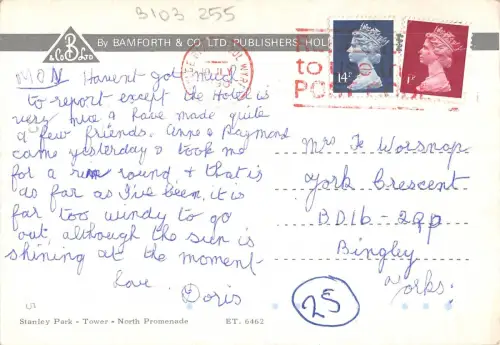 3103 255
By BAMFORTH & CO LTD. PUBLISHERS, HOL
B & Co LTD
14P
1P
to
MON Haven't got much
to report except the Hotel is
very nice & have made quite
a few friends. Anne & Raymond
came yesterday & took me
for a run round & that is
as far as I've been, it is
far too windy to go
out, although the sun is
shining at the moment
Love
Doris
Mrs Worsnop
York Crescent
BD16-2QP
Bingley
Yorks.
25
Stanley Park - Tower - North Promenade ET. 6462